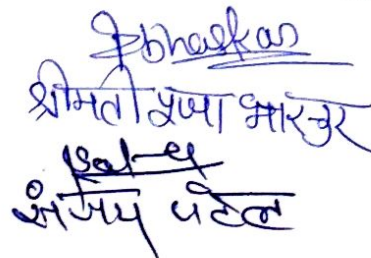 Pbhaskar
श्रीमती पूजा भास्कर
संजय पटेल